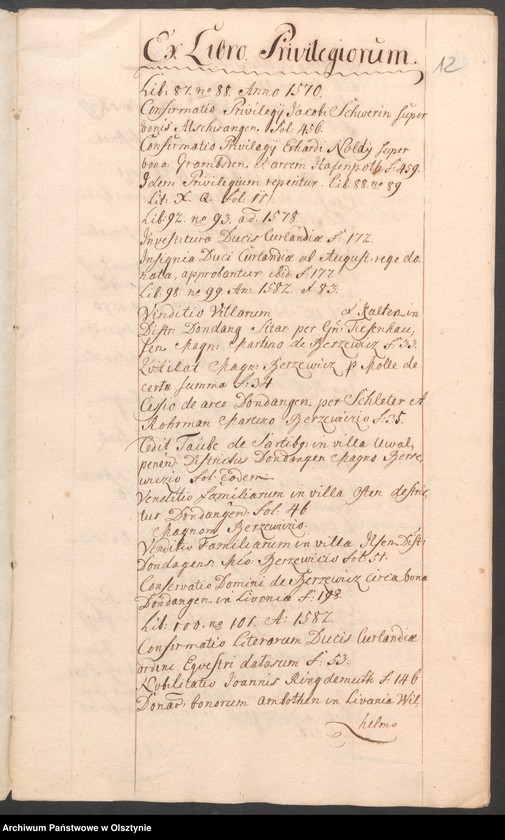 Ex Libro Privilegiorum.
12
Lib: 87. no 88. Anno 1570.
Confirmatio Privilegÿ Jacobi Schwerin super
bonis Alschwangen. fol: 456.
Confirmatio Privilegÿ Erhardi Noldÿ super
bona Grambden. et arcem Hasenpoth f: 459.
Idem Privilegium reperitur Lib 88. no 89
Lit: X. Q. fol: 17.
Lib: 92. no 93. ad. 1578
Investitura Ducis Curlandiæ f: 172.
Insignia Duci Curlandiæ ab August. rege do
nata, approbantur ibid: f. 177.
Lib. 98. no 99. An: 1582. et 83.
Vinditio Villarum et Kalten in
Distr: Dondang Sitar. per Gn: Tiesenhau,
sen Magn: Martino de Berzewicz f: 33.
Magn: Berzewicz p Molle de
certa summa f: 34
Cessio de arce Dondangen per Schleter et
Rohrman Martino Berzewiczio f: 35.
Cedit Taube de in villa
penen Districtus Dondangen Magno Berze
wiczio fol: eodem
Venditio familiarum in villa Osten distric
tus Dondangen: fol: 46
Magnom Berzewizio.
Venditio Familiarum in villa Irsen Dist:
Dondagens. Berzewicio fol: 51.
Conservatio Domini de Berzewicz circa bona
Dondangen in Livonia f: 198.
Lib: 100. no 101. A: 1582.
Confirmatio Literarum Ducis Curlandiæ
ordini Equestri datarum f: 53.
Nobilitatio Joannis Ringdemuth f. 146
Donao: bonorum Amböthen in Livania Wil
helmo
Archiwum Państwowe w Olsztynie